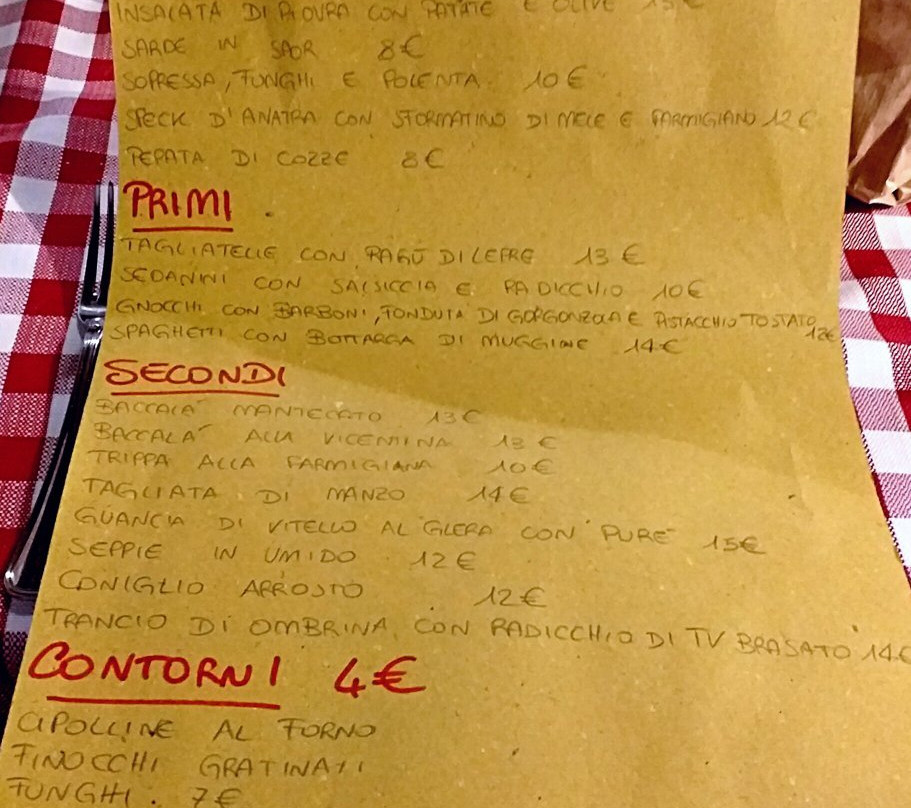 INSALATA DI PIOVRA CON PATATE E OLIVE 15€
SARDE IN SAOR 8€
SOPRESSA, FUNGHI E POLENTA 10€
SPECK D'ANATRA CON SFORMATINO DI MELE E PARMIGIANO 12€
PEPATA DI COZZE 8€
PRIMI
TAGLIATELLE CON RAGÙ DI LEPRE 13€
SEDANINI CON SALSICCIA E RADICCHIO 10€
GNOCCHI CON BARBONI, FONDUTA DI GORGONZOLA E PISTACCHIO TOSTATO 12€
SPAGHETTI CON BOTTARGA DI MUGGINE 14€
SECONDI
BACCALA' MANTECATO 13€
BACCALA' ALLA VICENTINA 13€
TRIPPA ALLA PARMIGIANA 10€
TAGLIATA DI MANZO 14€
GUANCIA DI VITELLO AL GLERA CON PURE' 15€
SEPPIE IN UMIDO 12€
CONIGLIO ARROSTO 12€
TRANCIO DI OMBRINA CON RADICCHIO DI TV BRASATO 14€
CONTORNI 4€
CIPOLLINE AL FORNO
FINOCCHI GRATINATI
FUNGHI. 7€